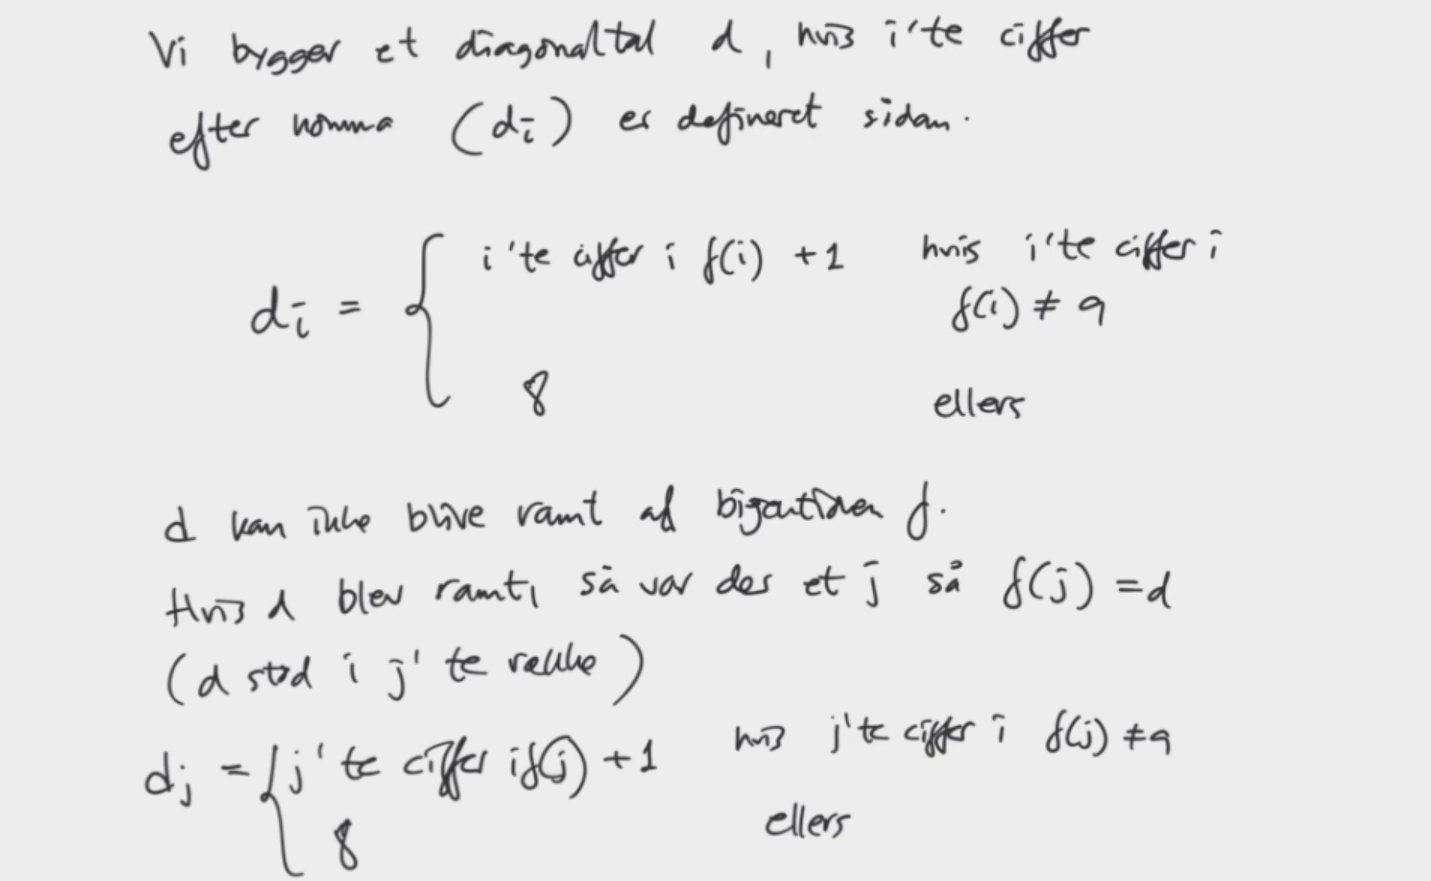 Vi bygger et diagonaltal d, hvis i'te ciffer
efter komma (dᵢ) er defineret sådan.
dᵢ = { i'te ciffer i f(i) +1 hvis i'te ciffer i
f(i) ≠ 9
8 ellers
d kan ikke blive ramt af bijektionen f.
Hvis d blev ramt, så var der et j så f(j) = d
(d stod i j'te række)
dⱼ = { j'te ciffer i f(j) +1 hvis j'te ciffer i f(j) ≠ 9
8 ellers